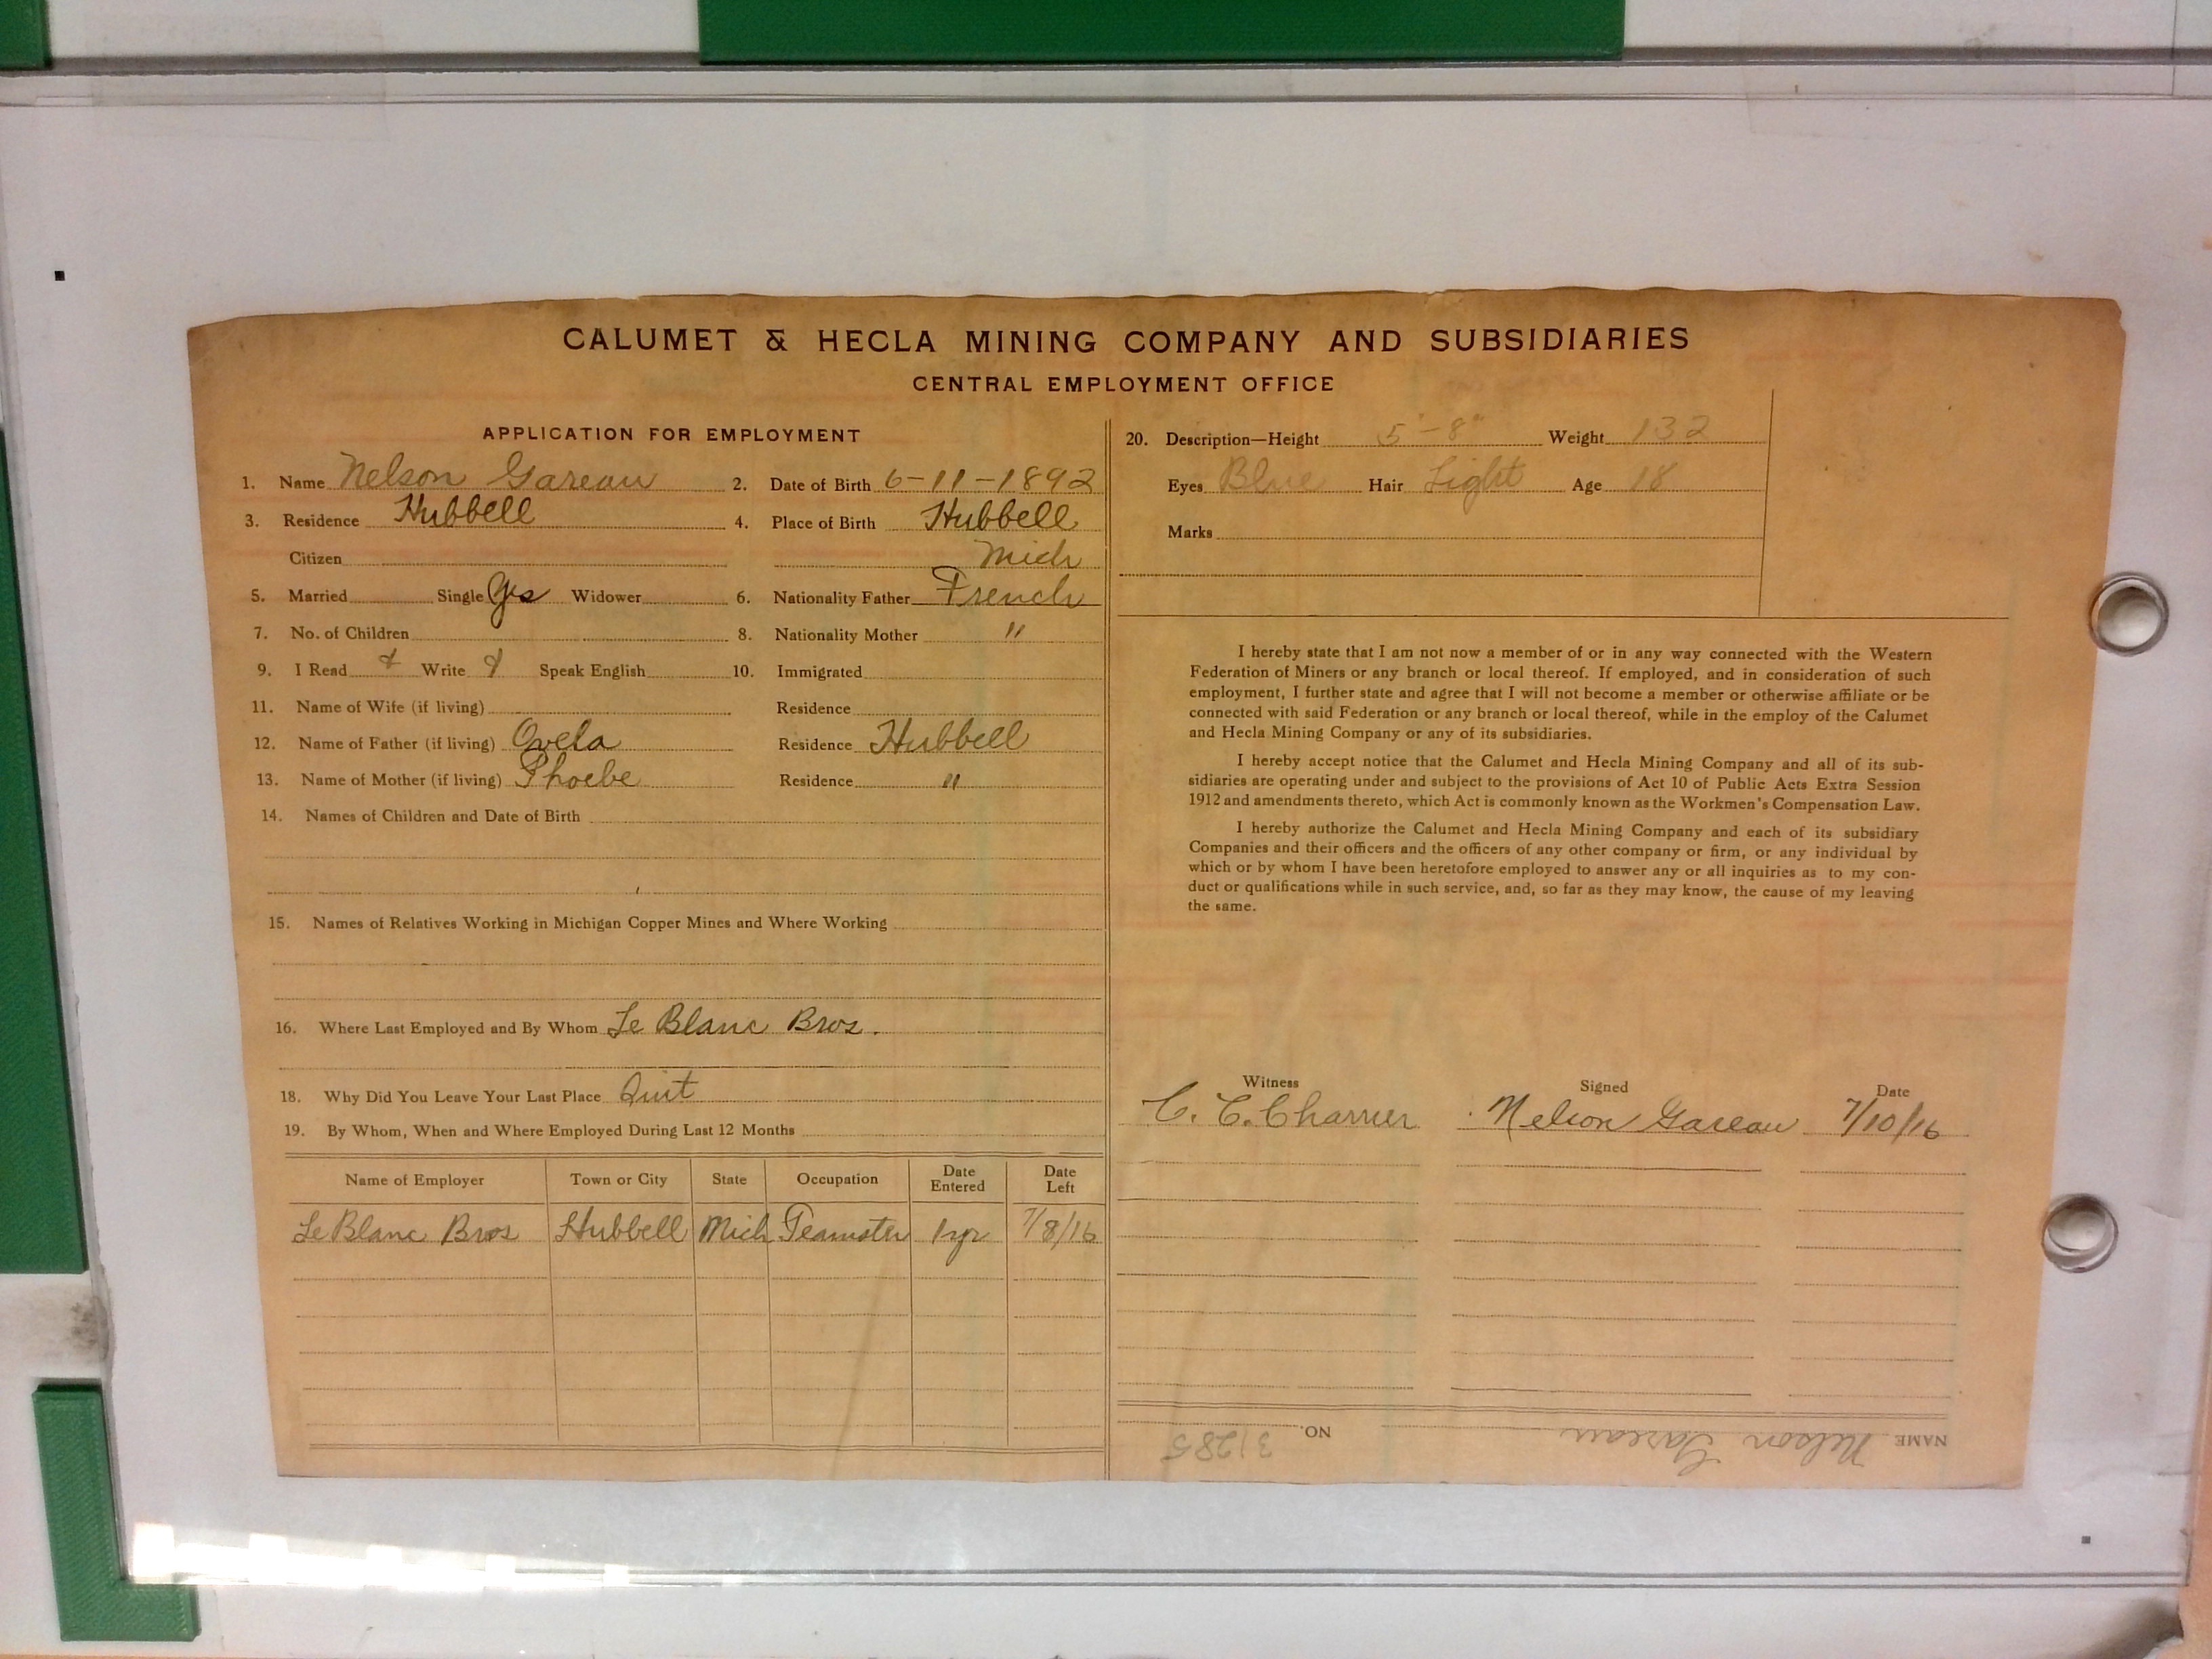 CALUMET & HECLA MINING COMPANY AND SUBSIDIARIES
CENTRAL EMPLOYMENT OFFICE
APPLICATION FOR EMPLOYMENT
1. Name Nelson Gareau 2. Date of Birth 6-11-1892
3. Residence Hubbell 4. Place of Birth Hubbell
Citizen Mich
5. Married Single Yes Widower 6. Nationality Father French
7. No. of Children 8. Nationality Mother "
9. I Read Write Speak English 10. Immigrated
11. Name of Wife (if living) Residence
12. Name of Father (if living) Ovela Residence Hubbell
13. Name of Mother (if living) Phoebe Residence "
14. Names of Children and Date of Birth
15. Names of Relatives Working in Michigan Copper Mines and Where Working
16. Where Last Employed and By Whom Le Blanc Bros.
18. Why Did You Leave Your Last Place Quit
19. By Whom, When and Where Employed During Last 12 Months
Name of Employer Town or City State Occupation Date Entered Date Left
Le Blanc Bros Hubbell Mich Teamster 1 yr 7/8/16
20. Description—Height 5'-8" Weight 132
Eyes Blue Hair Light Age 18
Marks
I hereby state that I am not now a member of or in any way connected with the Western
Federation of Miners or any branch or local thereof. If employed, and in consideration of such
employment, I further state and agree that I will not become a member or otherwise affiliate or be
connected with said Federation or any branch or local thereof, while in the employ of the Calumet
and Hecla Mining Company or any of its subsidiaries.
I hereby accept notice that the Calumet and Hecla Mining Company and all of its sub-
sidiaries are operating under and subject to the provisions of Act 10 of Public Acts Extra Session
1912 and amendments thereto, which Act is commonly known as the Workmen's Compensation Law.
I hereby authorize the Calumet and Hecla Mining Company and each of its subsidiary
Companies and their officers and the officers of any other company or firm, or any individual by
which or by whom I have been heretofore employed to answer any or all inquiries as to my con-
duct or qualifications while in such service, and, so far as they may know, the cause of my leaving
the same.
Witness Signed Date
C. C. Charrier Nelson Gareau 7/10/16
NAME Nelson Gareau NO. 31285